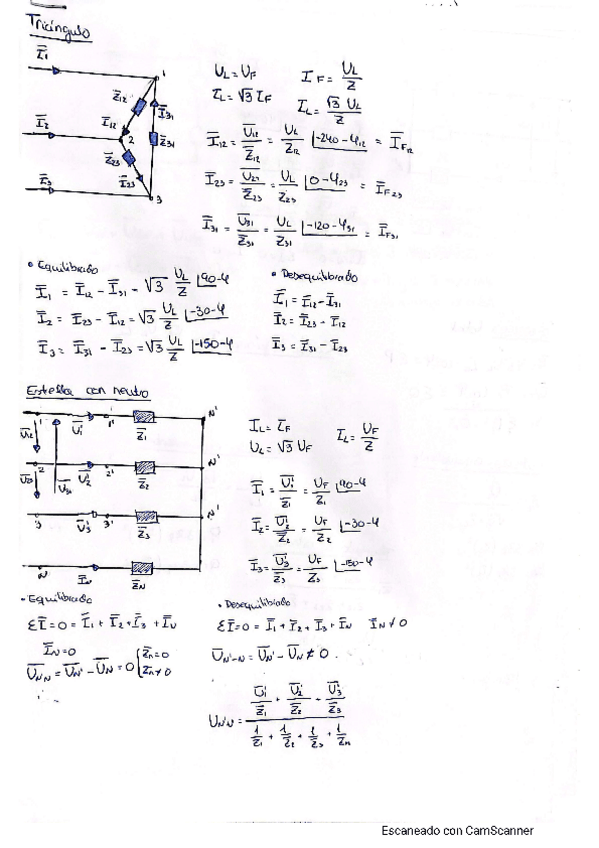 Triángulo
I̅1
I̅2
I̅3
1
2
3
Z̅12
I̅12
Z̅23
I̅23
I̅31
Z̅31
UL = UF
IF = UL/Z
IL = √3 IF
IL = √3 UL/Z
I̅12 = U̅12/Z̅12 = UL/Z12 |-240-φ12 = I̅F12
I̅23 = U̅23/Z̅23 = UL/Z23 |0-φ23 = I̅F23
I̅31 = U̅31/Z̅31 = UL/Z31 |-120-φ31 = I̅F31
• Equilibrado
I̅1 = I̅12 - I̅31 = √3 UL/Z |90-φ
I̅2 = I̅23 - I̅12 = √3 UL/Z |-30-φ
I̅3 = I̅31 - I̅23 = √3 UL/Z |-150-φ
• Desequilibrado
I̅1 = I̅12 - I̅31
I̅2 = I̅23 - I̅12
I̅3 = I̅31 - I̅23
Estrella con neutro
1 U̅1 1' Z̅1 N'
U̅12
2 U̅2 2' Z̅2 N'
U̅23 U̅31
3 U̅3 3' Z̅3 N'
N I̅N Z̅N
IL = IF
UL = √3 UF
IL = UF/Z
I̅1 = U̅1/Z̅1 = UF/Z1 |90-φ
I̅2 = U̅2/Z̅2 = UF/Z2 |-30-φ
I̅3 = U̅3/Z̅3 = UF/Z3 |-150-φ
• Equilibrado
ΣI̅=0 = I̅1 + I̅2 + I̅3 + I̅N
I̅N=0
U̅N'N = U̅N' - U̅N = 0 { Z̅n=0
Z̅n≠0
• Desequilibrado
ΣI̅=0 = I̅1 + I̅2 + I̅3 + I̅N I̅N≠0
U̅N'-N = U̅N' - U̅N ≠ 0.
U̅1/Z̅1 + U̅2/Z̅2 + U̅3/Z̅3
UN'N =
1/Z̅1 + 1/Z̅2 + 1/Z̅3 + 1/Z̅n
Escaneado con CamScanner